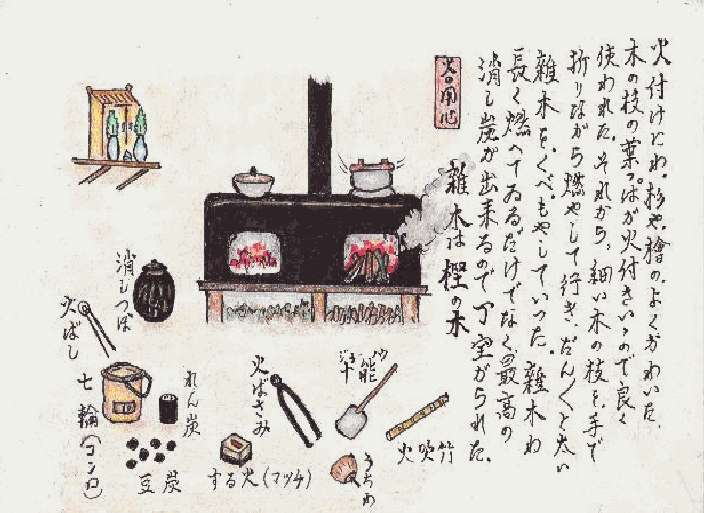 火付けにわ、杉や、檜の、よくかわいた、
木の枝の葉っぱが火付きいいので良く
使われた。それから、細い木の枝を、手で
折りながら燃やして行き、だん〱と太い
雑木を、くべ、もやしていった。雑木わ
長く燃へてゐるだけでなく、最高の
消し炭が出来るので丁宝がられた。
火の用心
雑木は樫の木
消しつぼ
火ばし
七輪(コンロ)
れん炭
豆炭
火ばさみ
する火(マッチ)
十能
うちわ
火吹竹